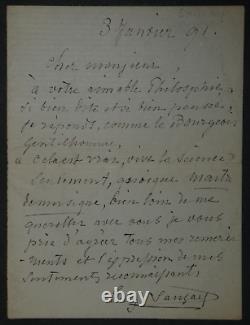 3 Janvier 91.
Cher monsieur,
à votre aimable Philosophie,
si bien dite et si bien pensée,
je réponds, comme le Bourgeois
Gentilhomme,
cela est vrai, vive la Science
Sentiment, quoique
de musique, bien loin de me
quereller avec vous je vous
prie d'agréer tous mes remercie-
ments et l'expression de mes
sentiments reconnaissants